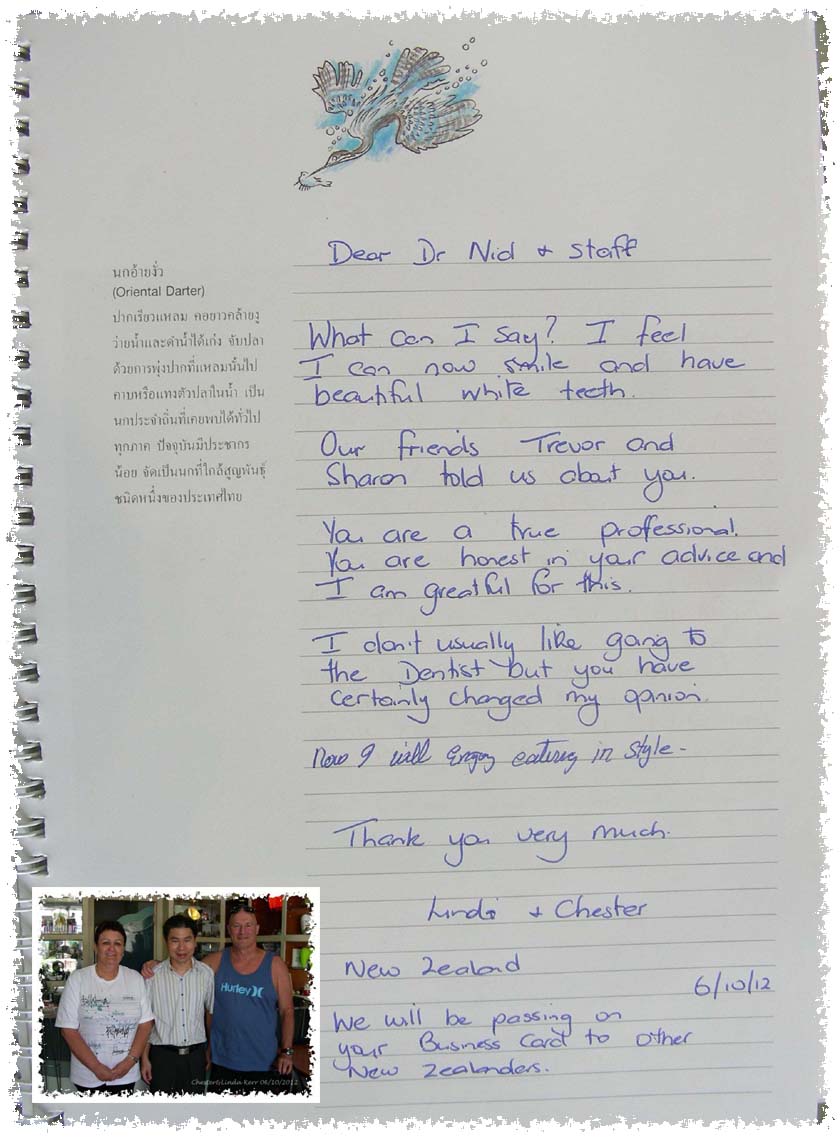 นกอ้ายงั่ว
(Oriental Darter)
ปากเรียวแหลม คอยาวคล้ายงู
ว่ายน้ำและดำน้ำได้เก่ง จับปลา
ด้วยการพุ่งปากที่แหลมนั้นไป
คาบหรือแทงตัวปลาในน้ำ เป็น
นกประจำถิ่นที่เคยพบได้ทั่วไป
ทุกภาค ปัจจุบันมีประชากร
น้อย จัดเป็นนกที่ใกล้สูญพันธุ์
ชนิดหนึ่งของประเทศไทย
Dear Dr Nid + Staff
What can I say? I feel
I can now smile and have
beautiful white teeth.
Our friends Trevor and
Sharon told us about you.
You are a true professional.
You are honest in your advice and
I am greatful for this.
I don't usually like going to
the Dentist but you have
certainly changed my opinion.
Now I will enjoy eating in style -
Thank you very much.
Linda + Chester
New Zealand
6/10/12
We will be passing on
your Business Card to other
New Zealanders.
Hurley
Chester&Linda Kerr 06/10/2012